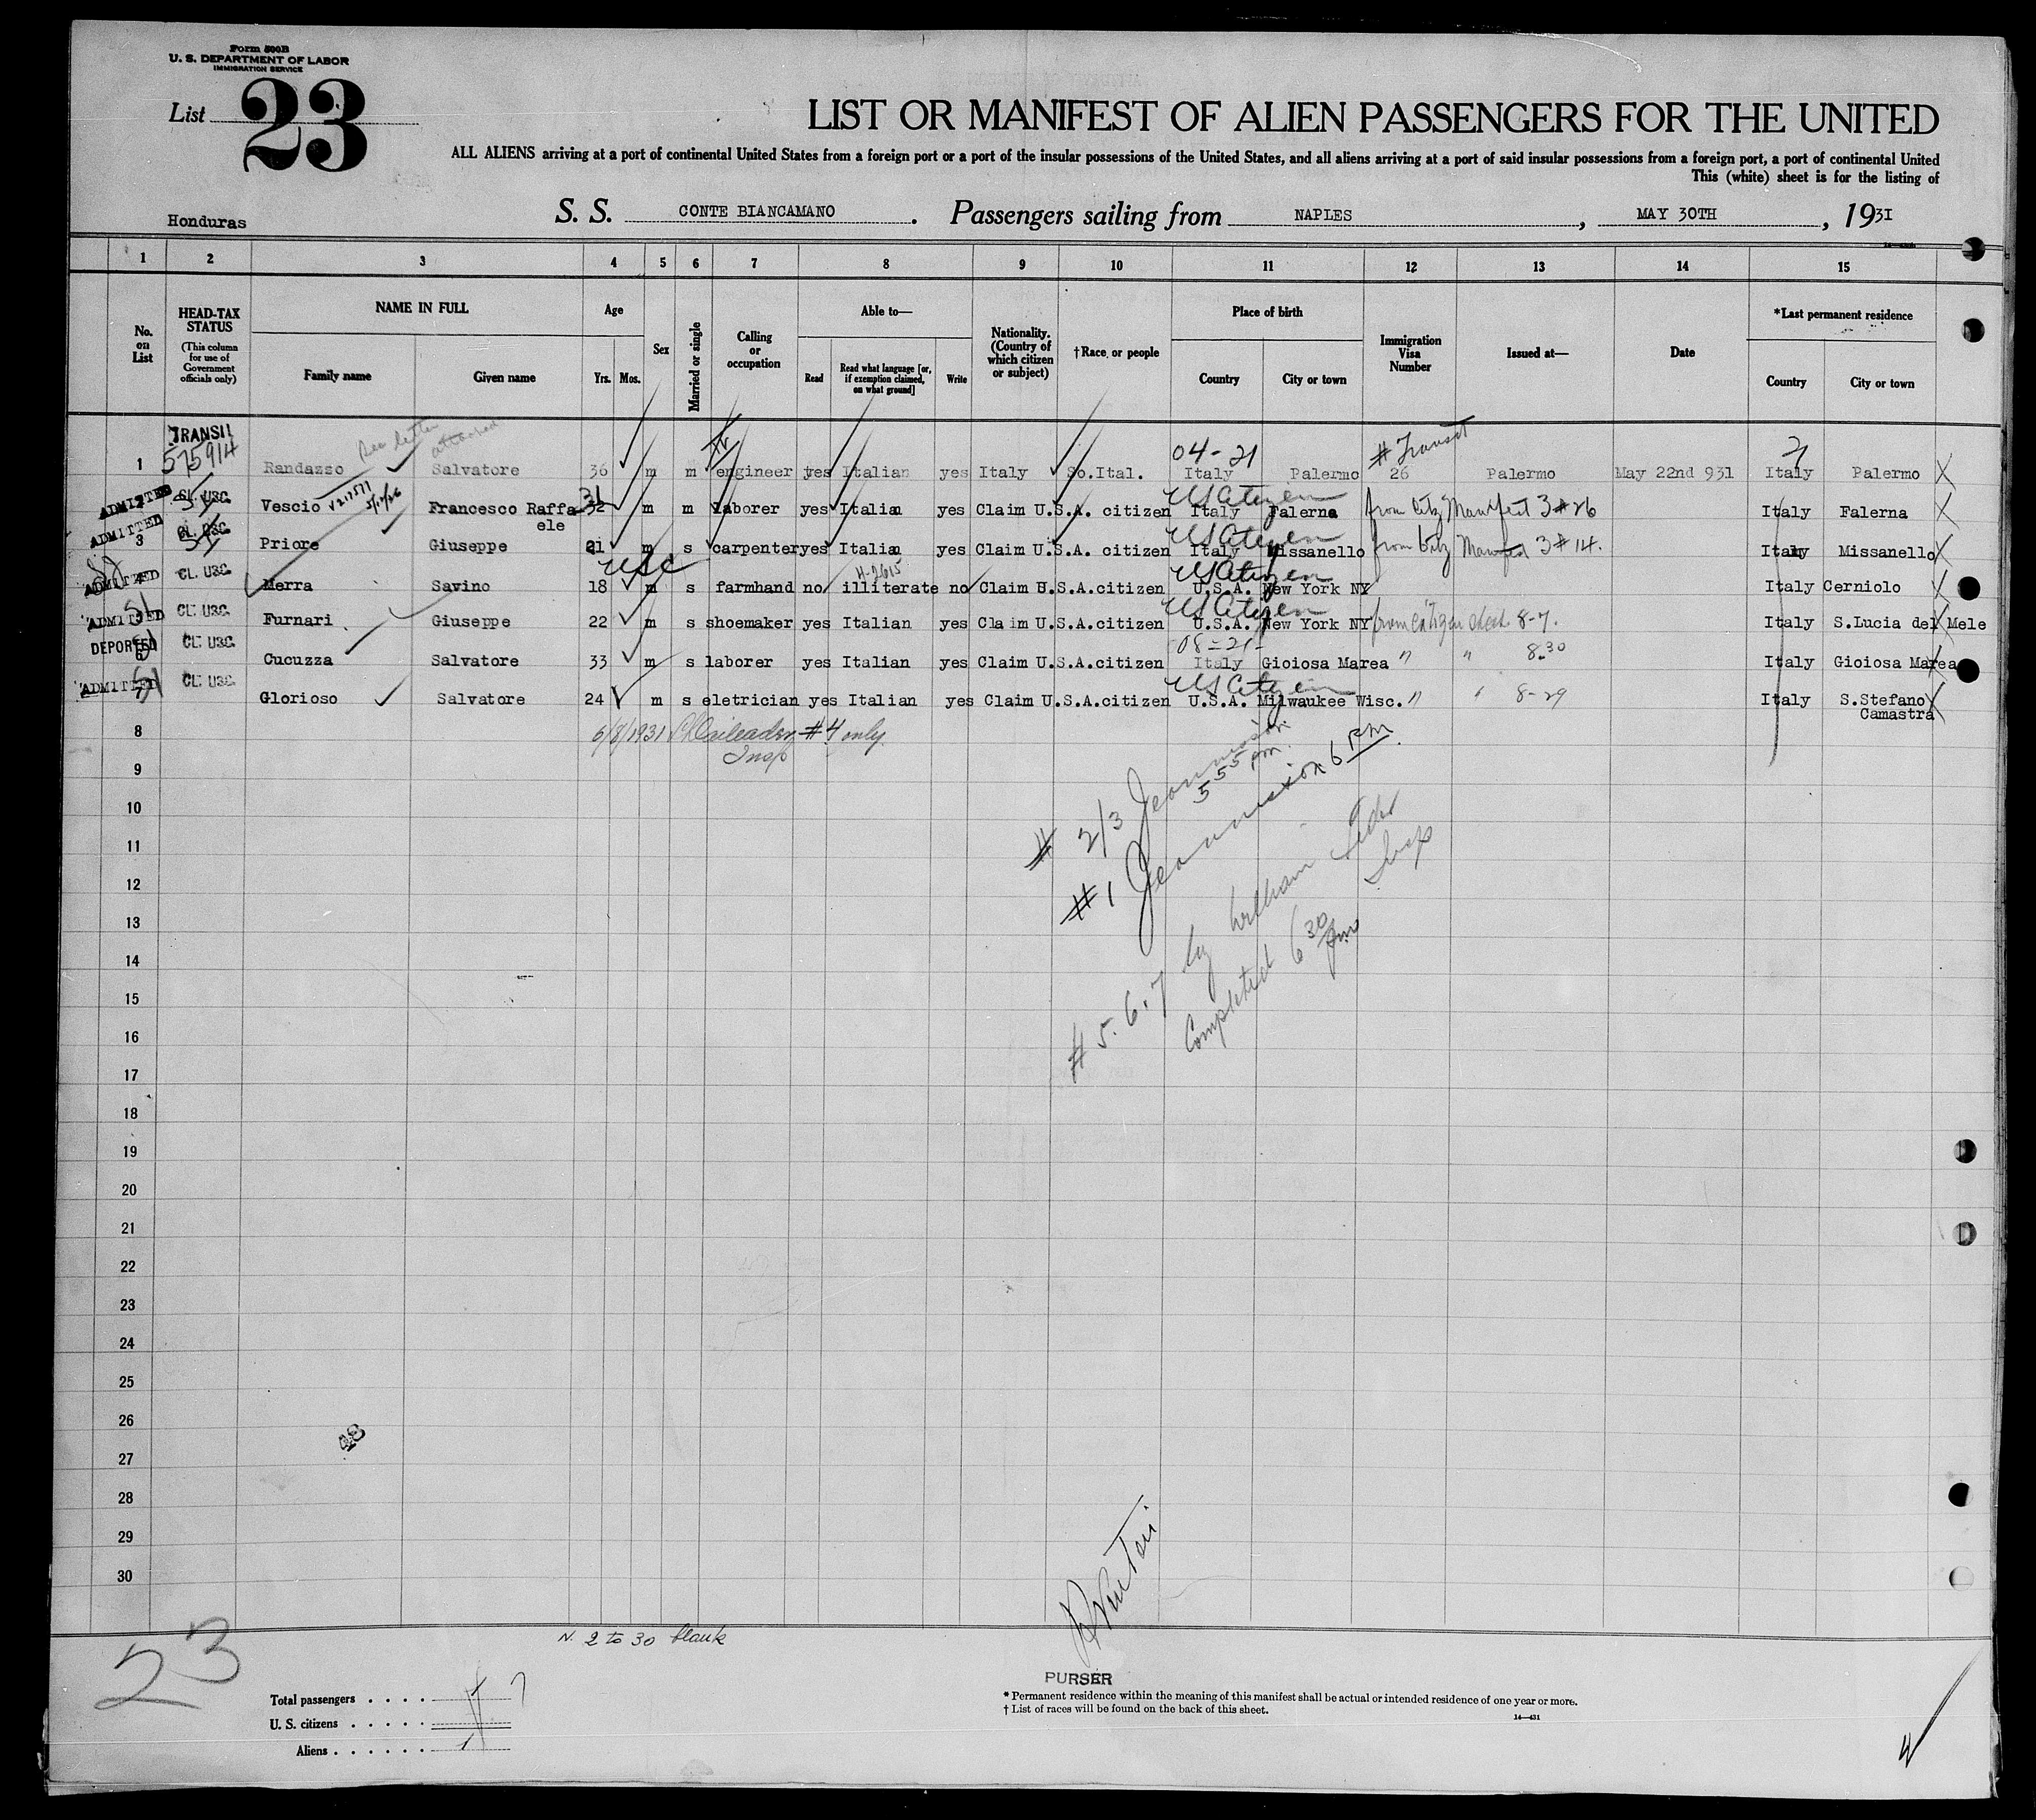 Form 500B
U. S. DEPARTMENT OF LABOR
IMMIGRATION SERVICE
List 23
LIST OR MANIFEST OF ALIEN PASSENGERS FOR THE UNITED
ALL ALIENS arriving at a port of continental United States from a foreign port or a port of the insular possessions of the United States, and all aliens arriving at a port of said insular possessions from a foreign port, a port of continental United
This (white) sheet is for the listing of
Honduras
S. S. CONTE BIANCAMANO. Passengers sailing from NAPLES, MAY 30TH, 1931
1 2 3 4 5 6 7 8 9 10 11 12 13 14 15
No. on List
HEAD-TAX STATUS (This column for use of Government officials only)
NAME IN FULL
Family name Given name
Age
Yrs. Mos.
Sex
Married or single
Calling or occupation
Able to—
Read Read what language [or, if exemption claimed, on what ground] Write
Nationality. (Country of which citizen or subject)
†Race or people
Place of birth
Country City or town
Immigration Visa Number
Issued at—
Date
*Last permanent residence
Country City or town
TRANSIT
575914
See letter attached
04-21
# Transit
1 Randazzo Salvatore 36 m m engineer yes Italian yes Italy So.Ital. Italy Palermo 26 Palermo May 22nd 931 Italy Palermo X
US Citizen
ADMITTED 2 CL. USC. Vescio Francesco Raffaele 31 32 m m laborer yes Italian yes Claim U.S.A. citizen Italy Falerna from Citz Manifest 3#26 Italy Falerna X
US Citizen
ADMITTED 3 CL. USC. Priore Giuseppe 21 m s carpenter yes Italian yes Claim U.S.A. citizen Italy Missanello from Citz Manifest 3#14. Italy Missanello X
USC
US Citizen
ADMITTED CL. USC. Merra Savino 18 m s farmhand no illiterate no Claim U.S.A.citizen U.S.A. New York NY Italy Cerniolo X
US Citizen
ADMITTED CL. USC. Furnari Giuseppe 22 m s shoemaker yes Italian yes Claim U.S.A.citizen U.S.A. New York NY from citizen sheet 8-7. Italy S.Lucia del Mele
08-21-
DEPORTED 6 CL. USC. Cucuzza Salvatore 33 m s laborer yes Italian yes Claim U.S.A.citizen Italy Gioiosa Marea " " 8-30 Italy Gioiosa Marea
US Citizen
ADMITTED CL. USC. Glorioso Salvatore 24 m s eletrician yes Italian yes Claim U.S.A.citizen U.S.A. Milwaukee Wisc. " " 8-29 Italy S.Stefano Camastra
8 6/8/1931 #4 only
Insp
9
10
11
12
13
14
15
16
17
18
19
20
21
22
23
24
25
26
27
28
29
30
# 2/3 5 55 pm.
#1 6 PM.
# 5. 6. 7 by William
Insp
Completed 6 30 pm
48
23
N. 2 to 30 blank
PURSER
Total passengers . . . . 7
U. S. citizens . . . . .
Aliens . . . . . . 1
* Permanent residence within the meaning of this manifest shall be actual or intended residence of one year or more.
† List of races will be found on the back of this sheet.
14—431